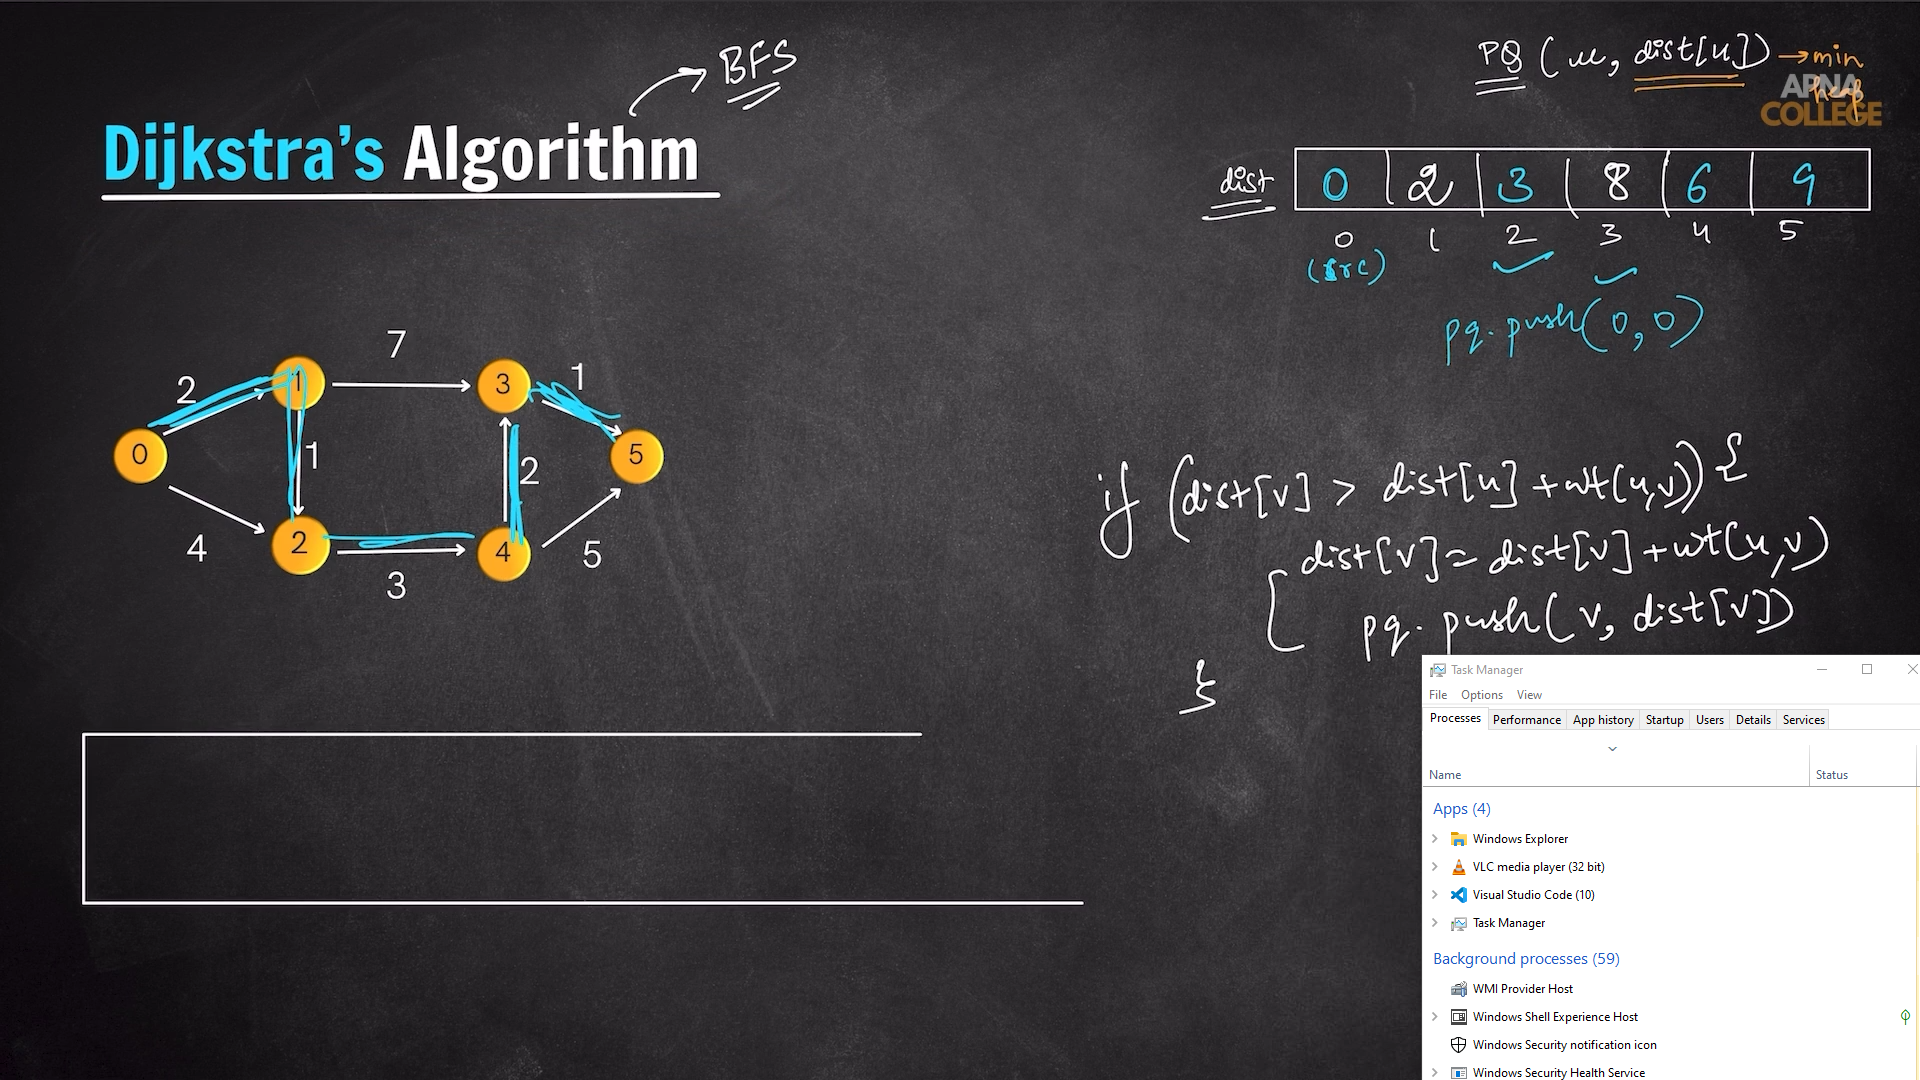 BFS
PQ (u, dist[u]) → min heap
APNA COLLEGE
Dijkstra's Algorithm
dist 0 2 3 8 6 9
0 1 2 3 4 5
(src)
pq.push(0,0)
7
2 1 3 1
0 1 2 5
4 2 4 5
3
if (dist[v] > dist[u] + wt(u,v)) {
dist[v] = dist[v] + wt(u,v)
pq.push(v, dist[v])
}
Task Manager
File Options View
Processes Performance App history Startup Users Details Services
Name Status
Apps (4)
Windows Explorer
VLC media player (32 bit)
Visual Studio Code (10)
Task Manager
Background processes (59)
WMI Provider Host
Windows Shell Experience Host
Windows Security notification icon
Windows Security Health Service